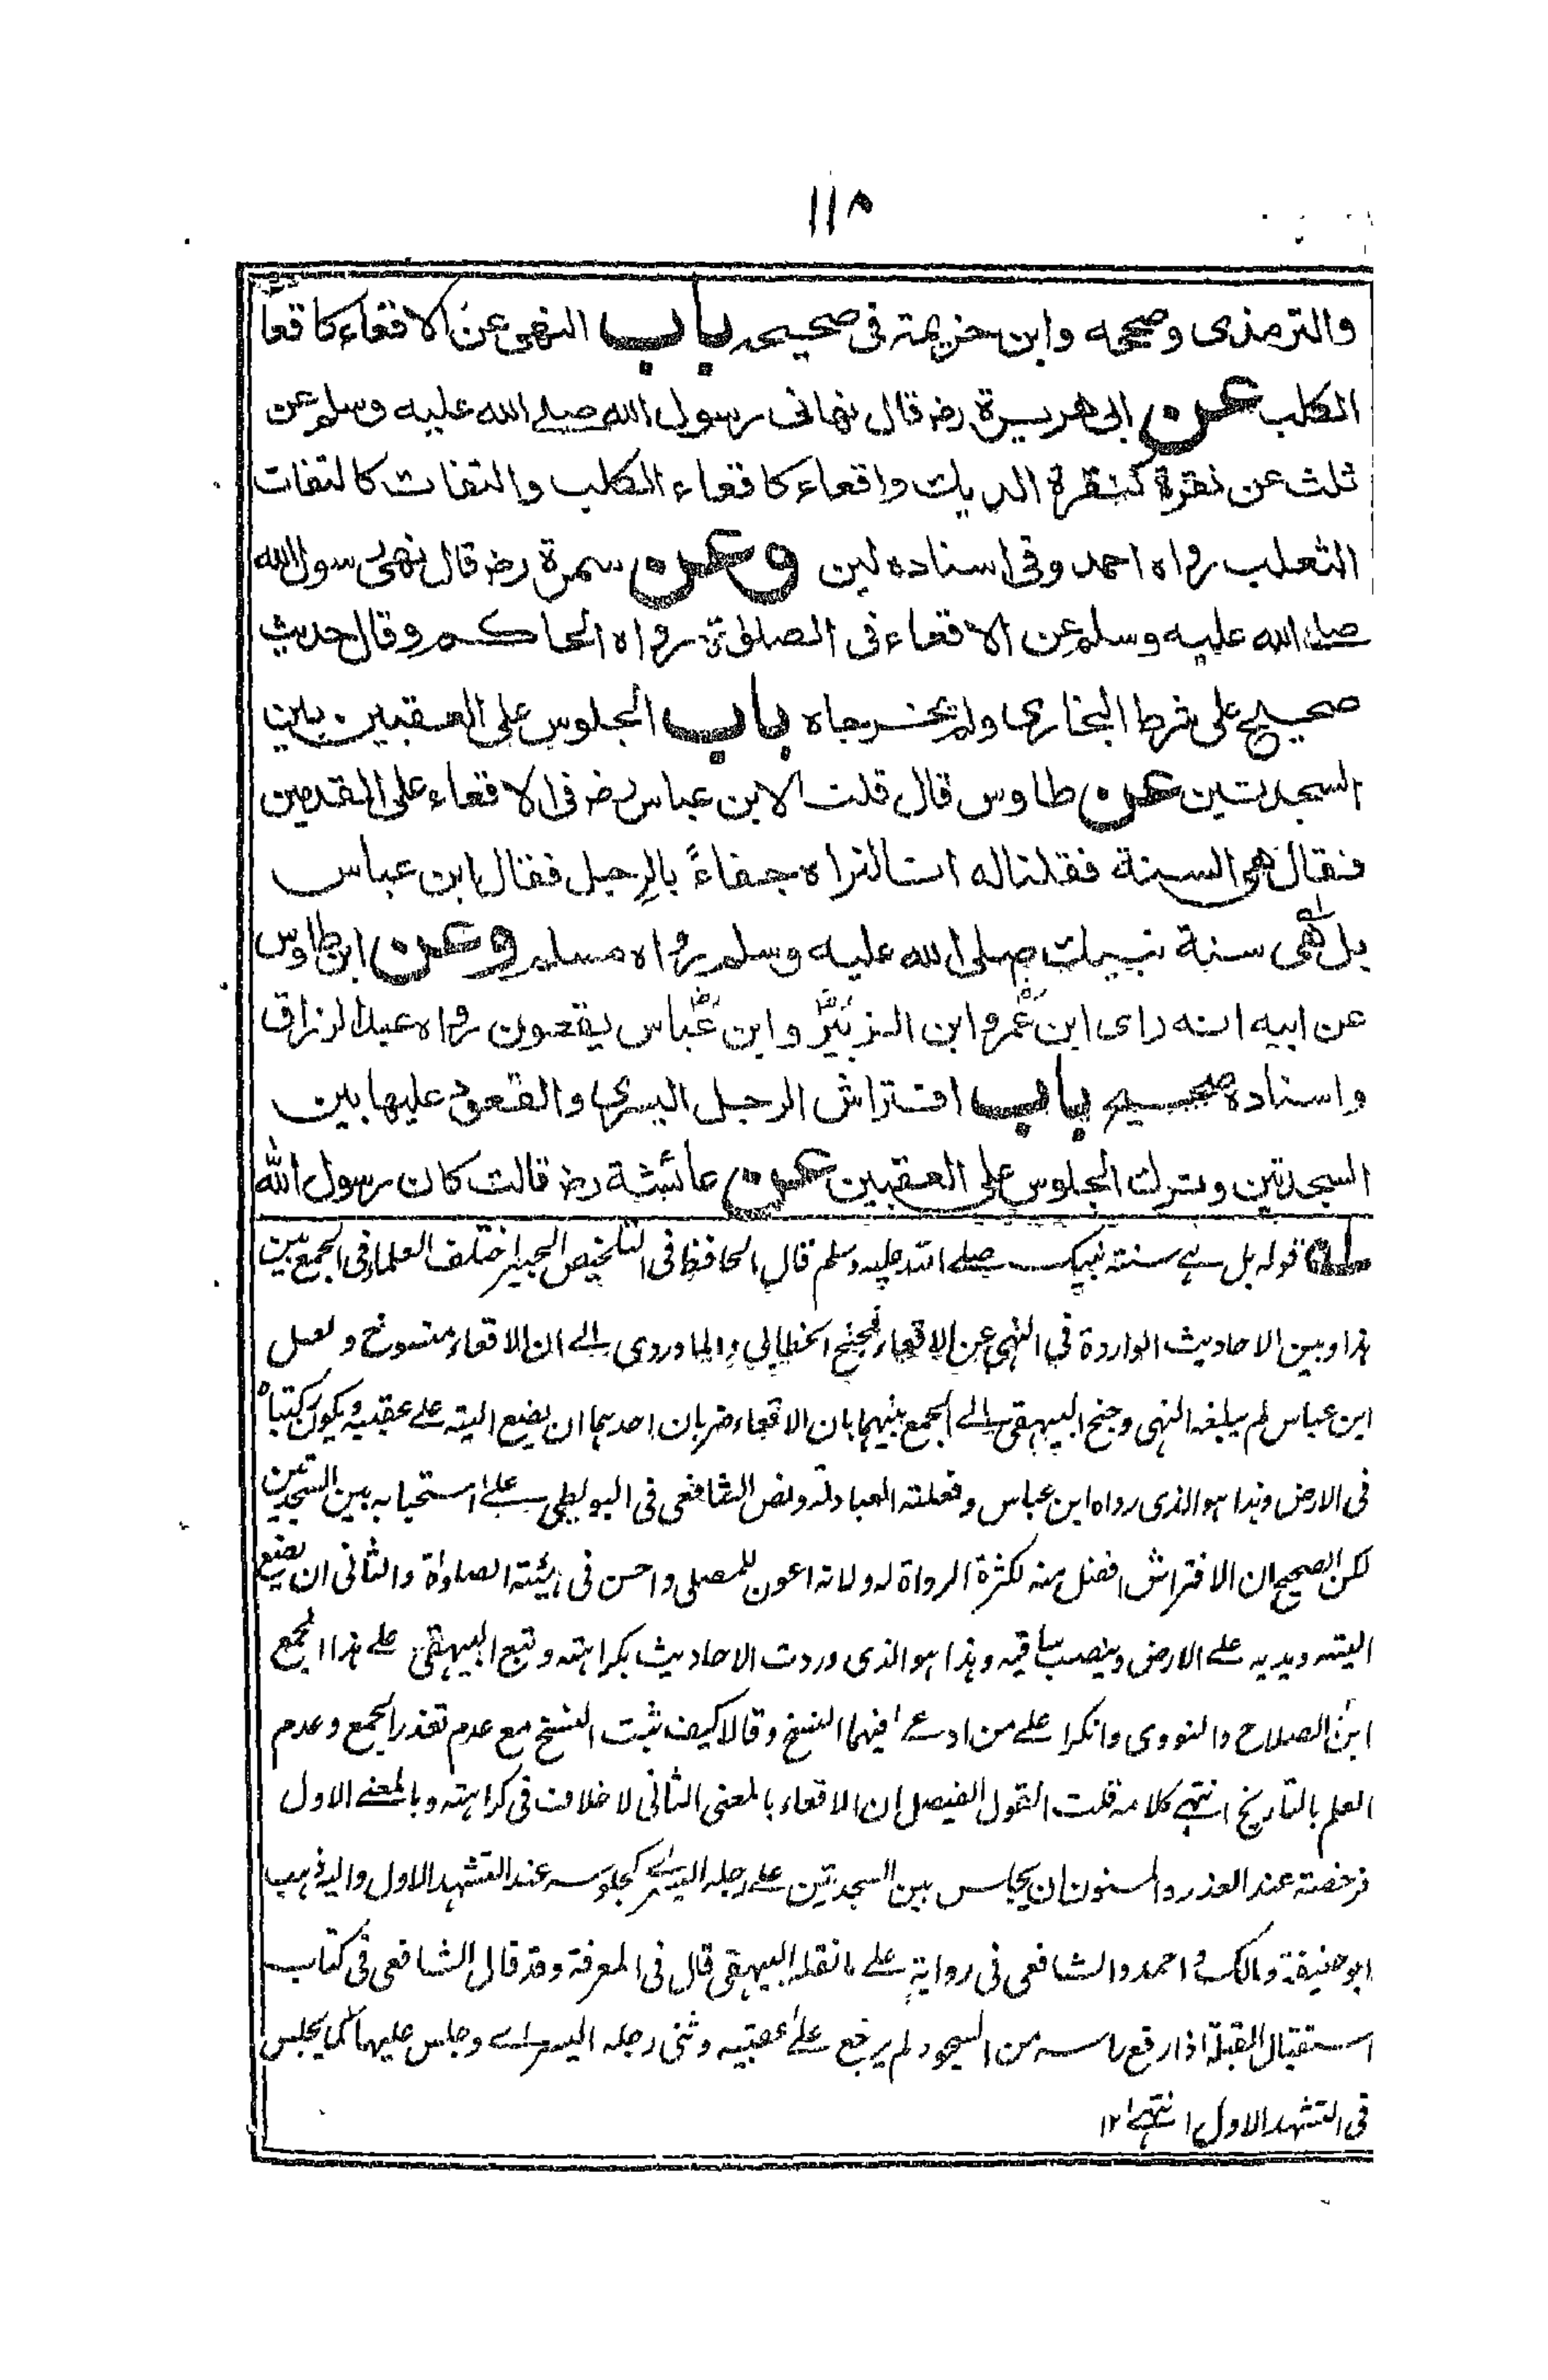 ١١٨
والترمذى وصححه وابن خزيمة فى صحيحه باب النهى عن الاقعاء كاقعاء
الكلب عن ابى هريرة رضـ قال نهانى رسول الله صلے الله عليه وسلم عن
ثلث عن نقرة كنقرة الديك واقعاء كاقعاء الكلب والتفات كالتفات
الثعلب رواه احمد وفى اسناده لين وعن سمرة رضـ قال نهى رسول الله
صلے الله عليه وسلم عن الاقعاء فى الصلوٰة رواه الحاكم وقال حديث
صحيح على شرط البخارى ولم يخرجاه باب الجلوس على العقبين بين
السجدتين عن طاوس قال قلت لابن عباس رضـ فى الاقعاء على القدمين
فقال هى السنة فقلنا له انا لنراه جفاءً بالرِجل فقال ابن عباس
بل هى سنة نبيك صلى الله عليه وسلم رواه مسلم وعن ابن طاوس
عن ابيه انه راى ابن عمر وابن الزبير وابن عباس يقعون رواه عبد الرزاق
واسناده صحيح باب افتراش الرجل اليسرىٰ والقعود عليها بين
السجدتين وترك الجلوس على العقبين عن عائشة رضـ قالت كان رسول الله
لـه قوله بل ہے سنة نبيك صلے الله عليه وسلم قال الحافظ فى التلخيص الحبير اختلف العلماء فى الجمع بين
هذا وبين الاحاديث الواردة فى النهى عن الاقعاء فجنح الخطابي والماوردى الے ان الاقعاء منسوخ ولعل
ابن عباس لم يبلغه النهى وجنح البيهقى الے الجمع بينهما بان الاقعاء ضربان احدهما ان يضع اليته علے عقبيه ويكون ركبتاه
فى الارض وهذا هو الذى رواه ابن عباس وفعلته العبادلة ونص الشافعى فى البويطى علےٰ استحبابه بين السجدتين
لكن الصحيح ان الافتراش افضل منه لكثرة الرواة له ولانه اعون للمصلى واحسن فى هيئة الصلوٰة والثانى ان يضع
اليته ويديه علے الارض وينصب ساقيه وهذا هو الذى وردت الاحاديث بكراهته وتبع البيهقى علے هذا الجمع
ابن الصلاح والنووى وانكرا علے من ادعےٰ فيهما النسخ وقالا كيف ثبت النسخ مع عدم تعذر الجمع وعدم
العلم بالتاريخ انتهے كلامه قلت القول الفيصل ان الاقعاء بالمعنى الثانى لا خلاف فى كراهته وبالمعنے الاول
فرخصته عند العذر والمسنون ان يجلس بين السجدتين علے رجله اليسرےٰ كجلوسه عند التشهد الاول واليه ذهب
ابو حنيفة ومالك واحمد والشافعى فى رواية علے ما نقله البيهقى قال فى المعرفة وقد قال الشافعى فى كتاب
استقبال القبلة اذا رفع راسه من السجود لم يرجع علےٰ عقبيه وثنى رجله اليسراے وجلس عليها كما يجلس
فى التشهد الاول انتهےٰ ١٢